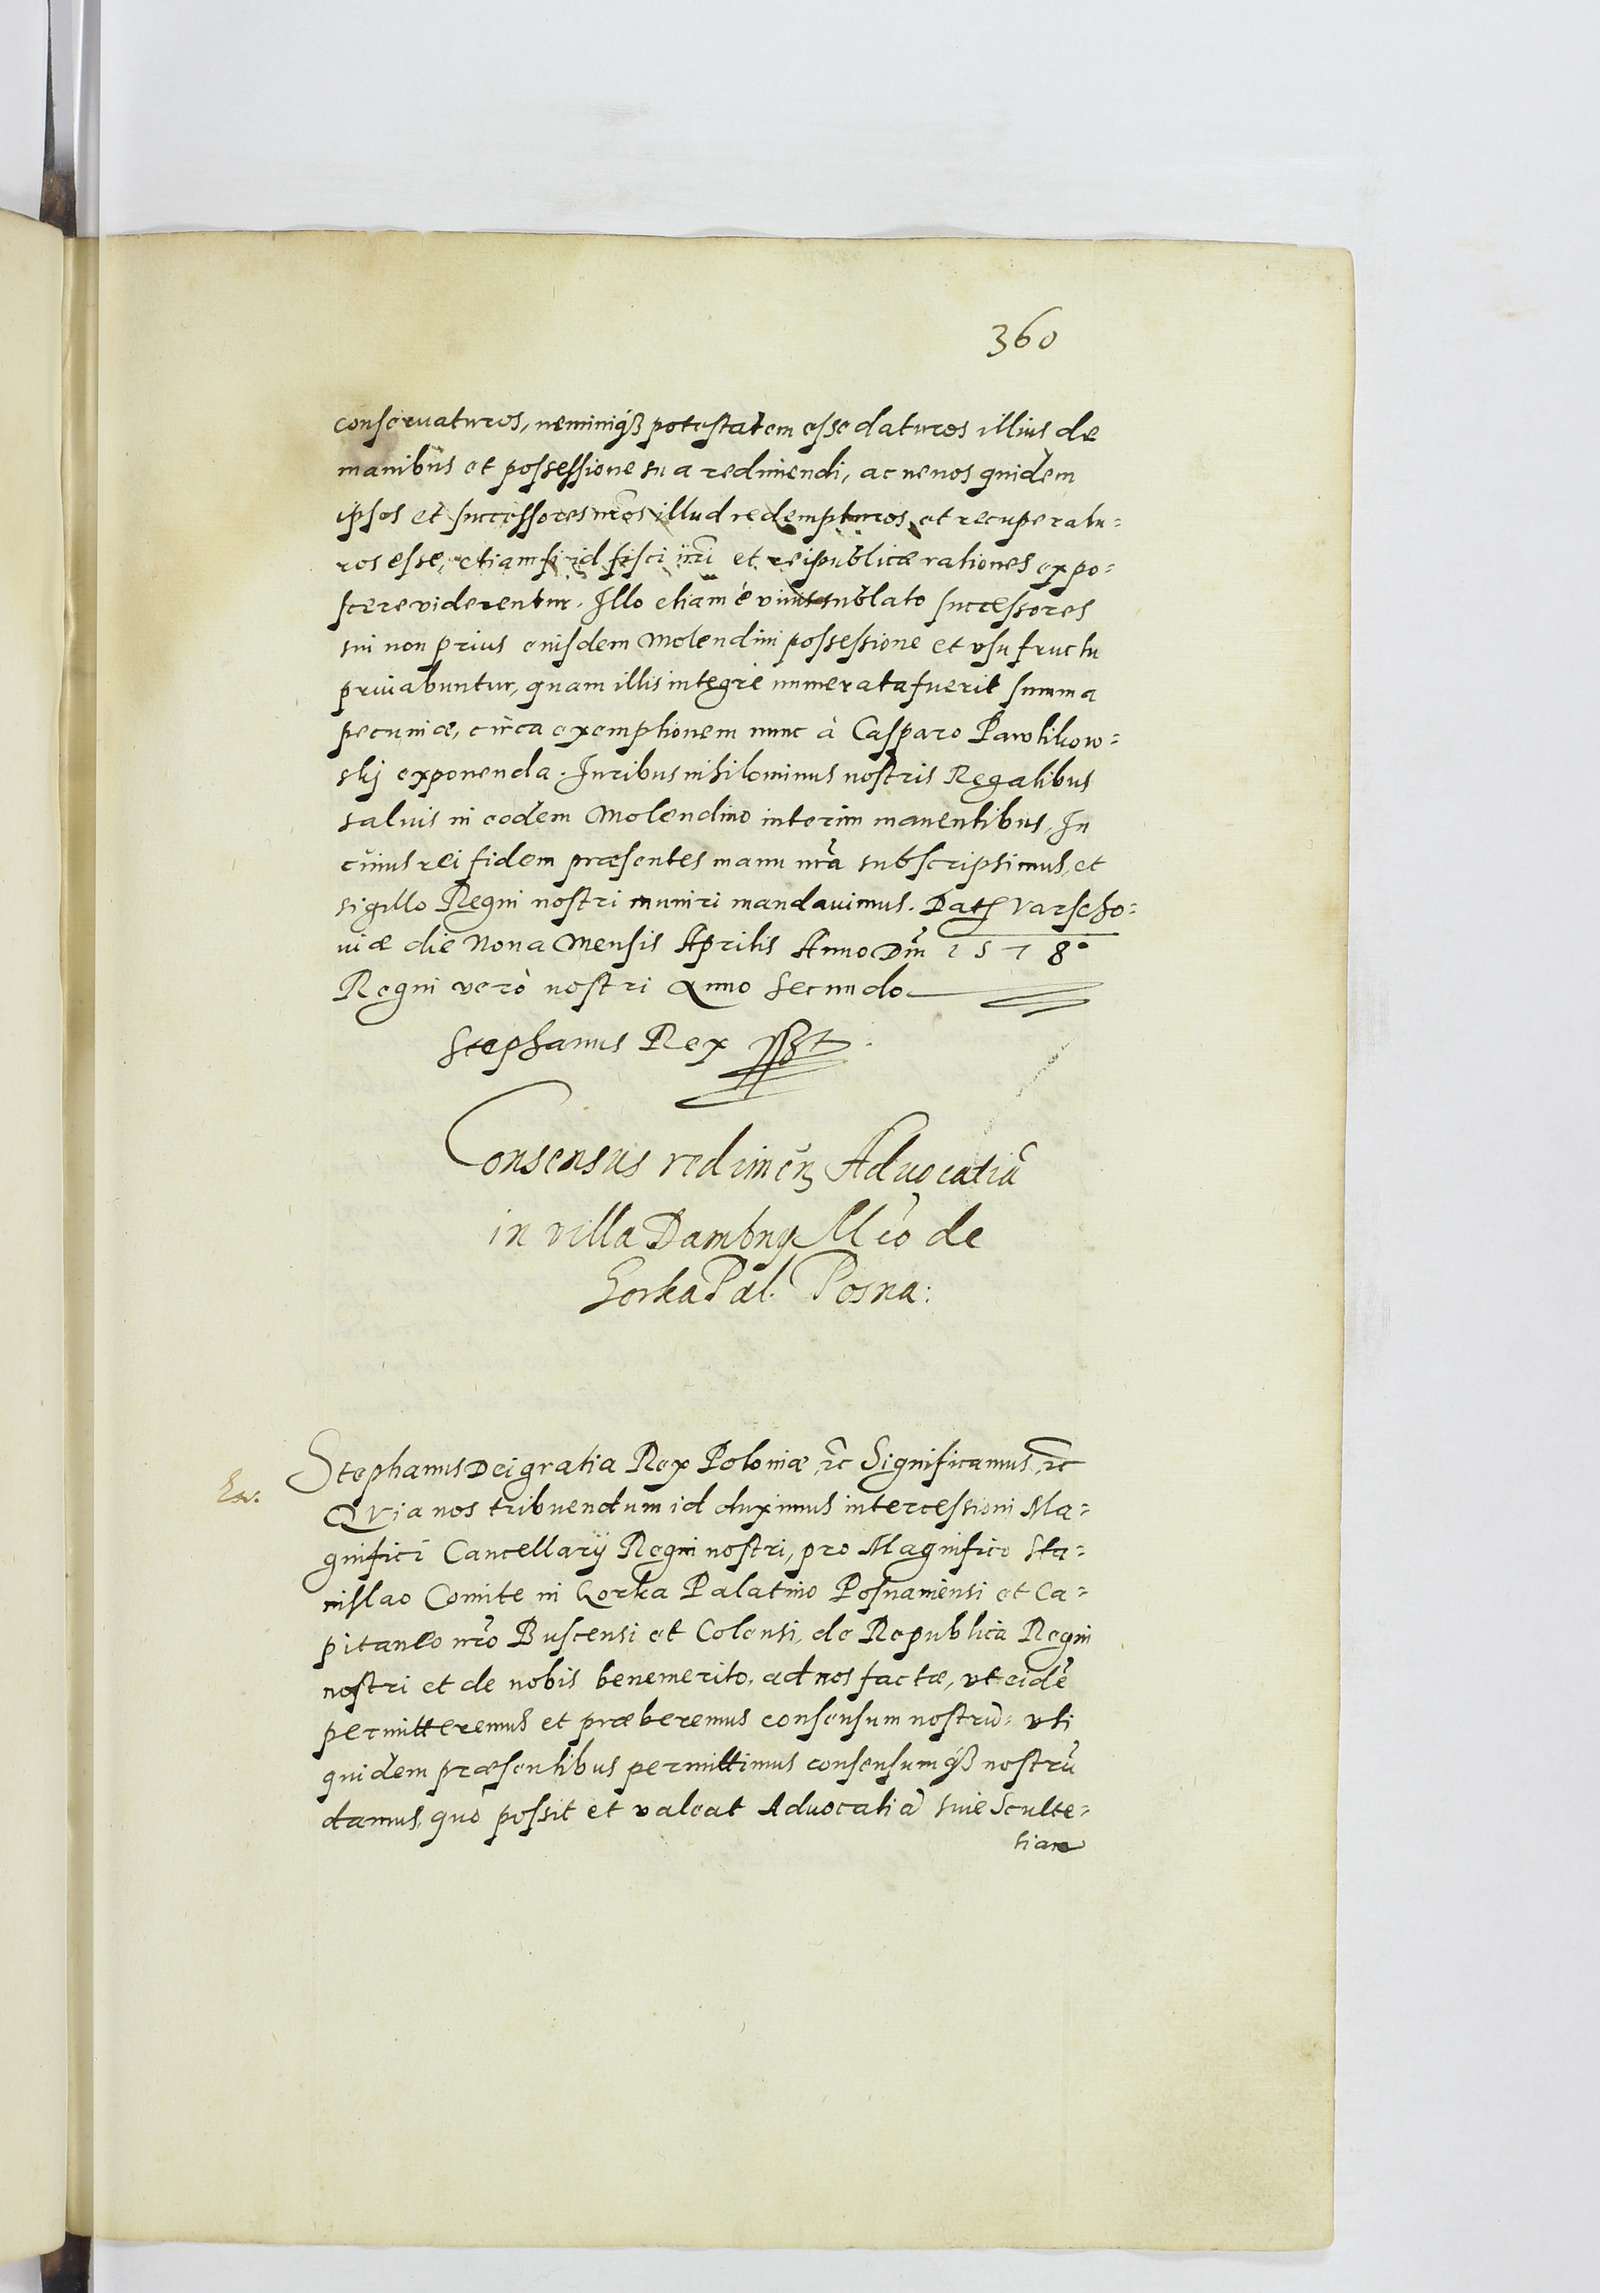 360
conseruaturos, neminiq3 potestatem esse daturos illius de
manibus et possessione sua redimendi, ac ne nos quidem
ipsos et successores nr̃os illud redempturos et recuperatu=
ros esse, etiam si id fisci nr̃i et reipublicæ rationes expo=
scere viderentur. Illo etiam è viuis sublato successores
sui non prius eiusdem Molendini possessione et vsu fructu
priuabuntur, quam illis integrè numerata fuerit summa
pecuniæ, circa exemptionem nunc à Casparo Pawlikow=
skj exponenda. Iuribus nihilominus nostris Regalibus
saluis in eodem Molendino interim manentibus. In
cuius rei fidem præsentes manu nr̃a subscripsimus, et
sigillo Regni nostri muniri mandauimus. Dat Varscho=
uiæ die Nona Mensis Aprilis Anno Dñi 1578.
Regni verò nostri Anno Secundo
Stephanus Rex
Consensus redimen Aduocatiã
in villa Dambny Mco de
Gorka Pal. Posna:
Stephanus Dei gratia Rex Poloniæ, etc Significamus, etc
Quia nos tribuendum id duximus intercessioni Ma=
gnifici Cancellarij Regni nostri, pro Magnifico Sta=
nislao Comite in Gorka Palatino Posnaniensi et Ca=
pitaneo nr̃o Buscensi et Colensi, de Republica Regni
nostri et de nobis benemerito, ad nos factæ, vt eidẽ
permitteremus et præberemus consensum nostrũ: vti
quidem præsentibus permittimus consensumq3 nostrũ
damus, quò possit et valeat Aduocatiã siue Sculte=
tiam